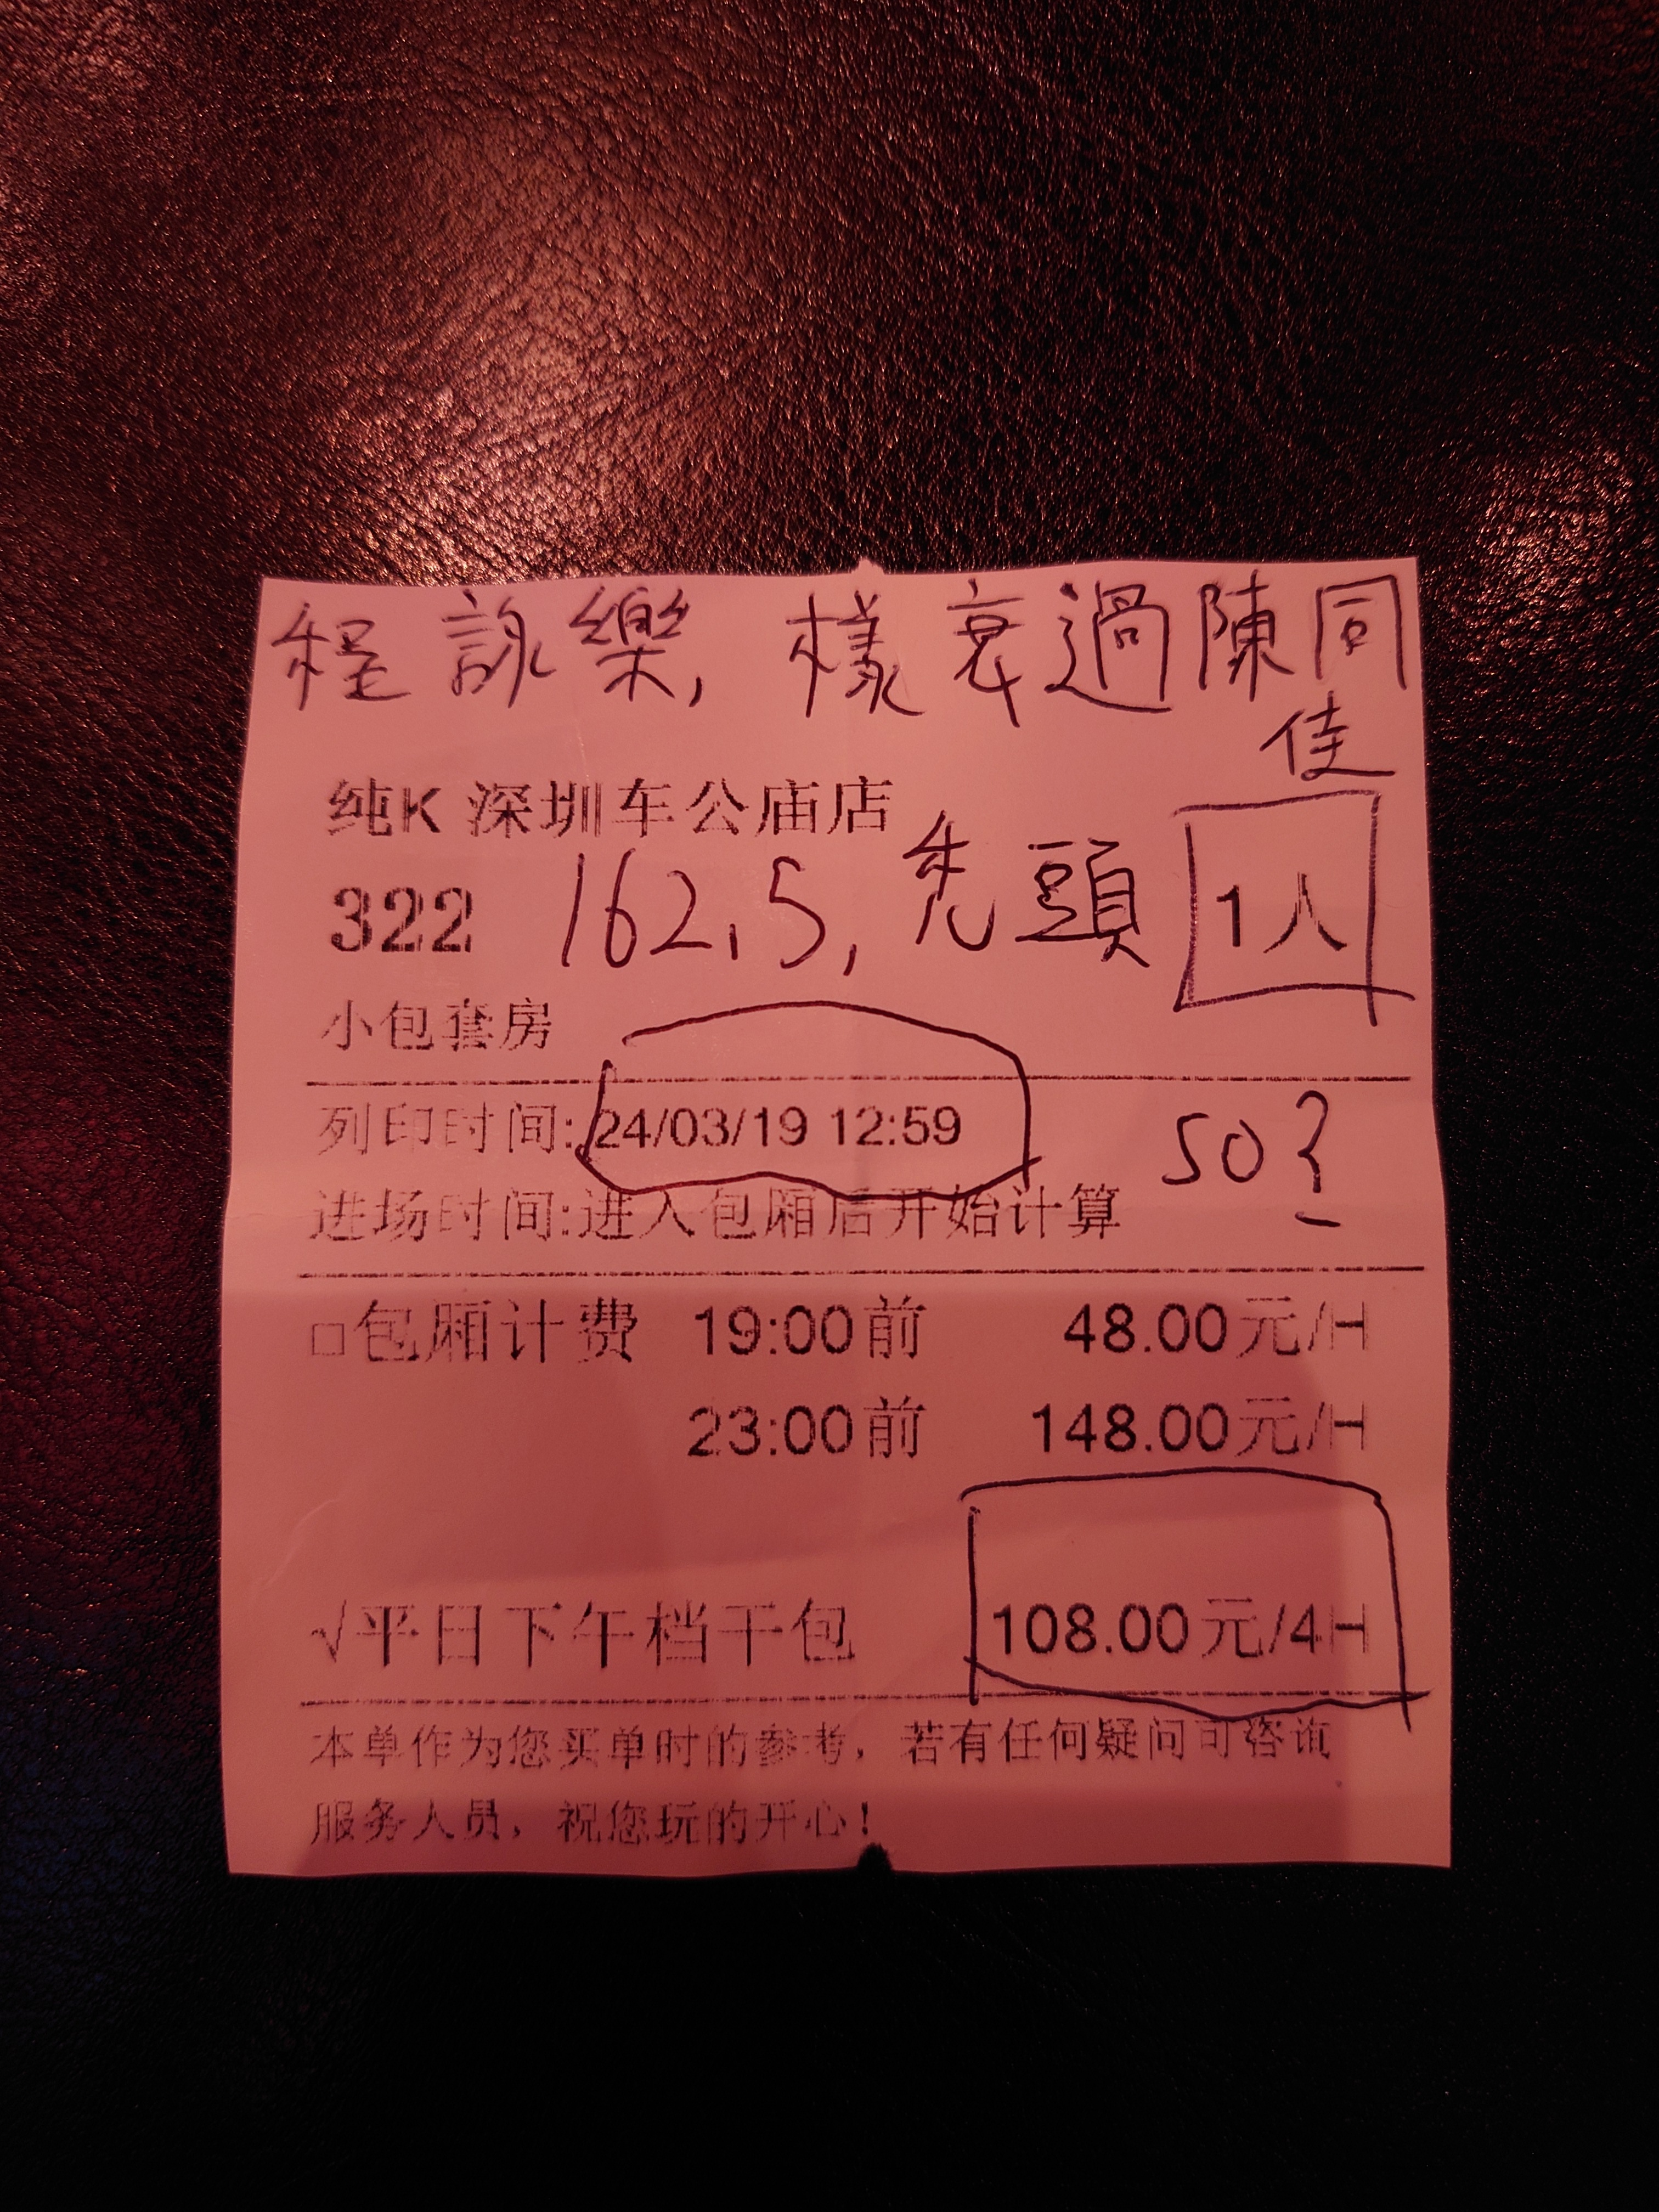 程詠樂,樣衰過陳同
佳
纯K 深圳车公庙店
322 162.5,禿頭 1人
小包套房
列印时间: 24/03/19 12:59
50
进场时间:进入包厢后开始计算
□包厢计费 19:00前 48.00元/H
23:00前 148.00元/H
√平日下午档干包 108.00元/4H
本单作为您买单时的参考，若有任何疑问可咨询
服务人员，祝您玩的开心！